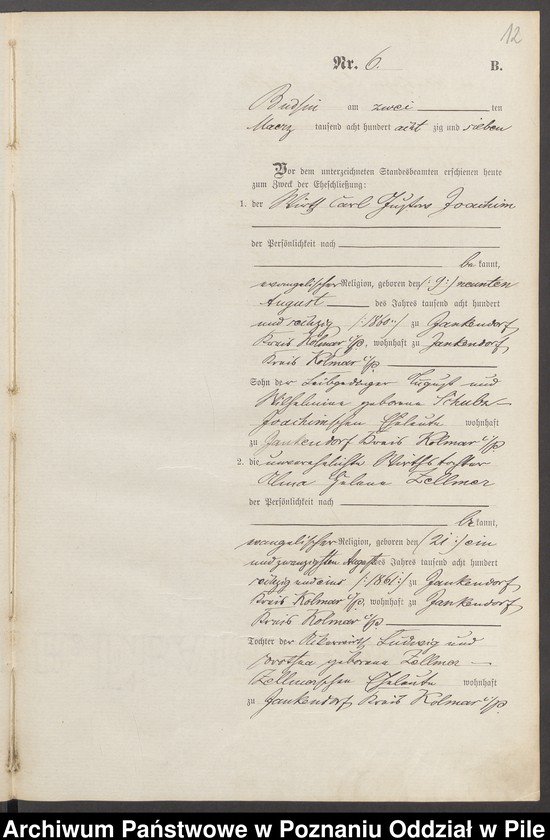 12
Nr. 6. B.
Budsin am zwei ten
Maerz tausend acht hundert acht zig und sieben
Vor dem unterzeichneten Standesbeamten erschienen heute
zum Zweck der Eheschließung:
1. der Wirth Carl Gustav Joachim
der Persönlichkeit nach
be kannt,
evangelischer Religion, geboren den (:9:) neunten
August des Jahres tausend acht hundert
und sechzig (:1860:) zu Jankendorf
Kreis Kolmar i/p, wohnhaft zu Jankendorf
Kreis Kolmar i/p.
Sohn der Leibgedinger August und
Wilhelmine geborene Schulz
Joachimschen Eheleute wohnhaft
zu Jankendorf Kreis Kolmar i/p
2. die unverehelichte Wirthstochter
Zellmer
der Persönlichkeit nach
be kannt,
evangelischer Religion, geboren den (:21:) ein
und zwanzigsten August des Jahres tausend acht hundert
sechzig und eins (:1861:) zu Jankendorf
Kreis Kolmar i/p, wohnhaft zu Jankendorf
Kreis Kolmar i/p
Tochter der Ackerwirth Ludwig und
Dorothea geborene Zellmer
Zellmerschen Eheleute wohnhaft
zu Jankendorf Kreis Kolmar i/p.
Archiwum Państwowe w Poznaniu Oddział w Pile